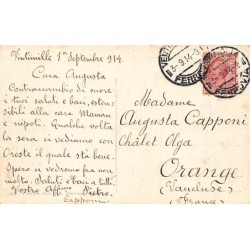 Ventimille 1er Septembre 914.
Cara Augusta
Contraccambio di cuore
i tuoi saluti e baci, esten-
sibili alla cara Maman
e nipoti. Qualche volta
la sera ci vediamo con
Oreste il quale sta bene.
Spero ci vedremo fra non
molto. Saluti e baci a tutti
Vostro Affmo Pietro.
Capponi
Madame
Augusta Capponi
Châlet Olga
Orange
(Vaucluse)
(France)
3-9.14-9
FERR